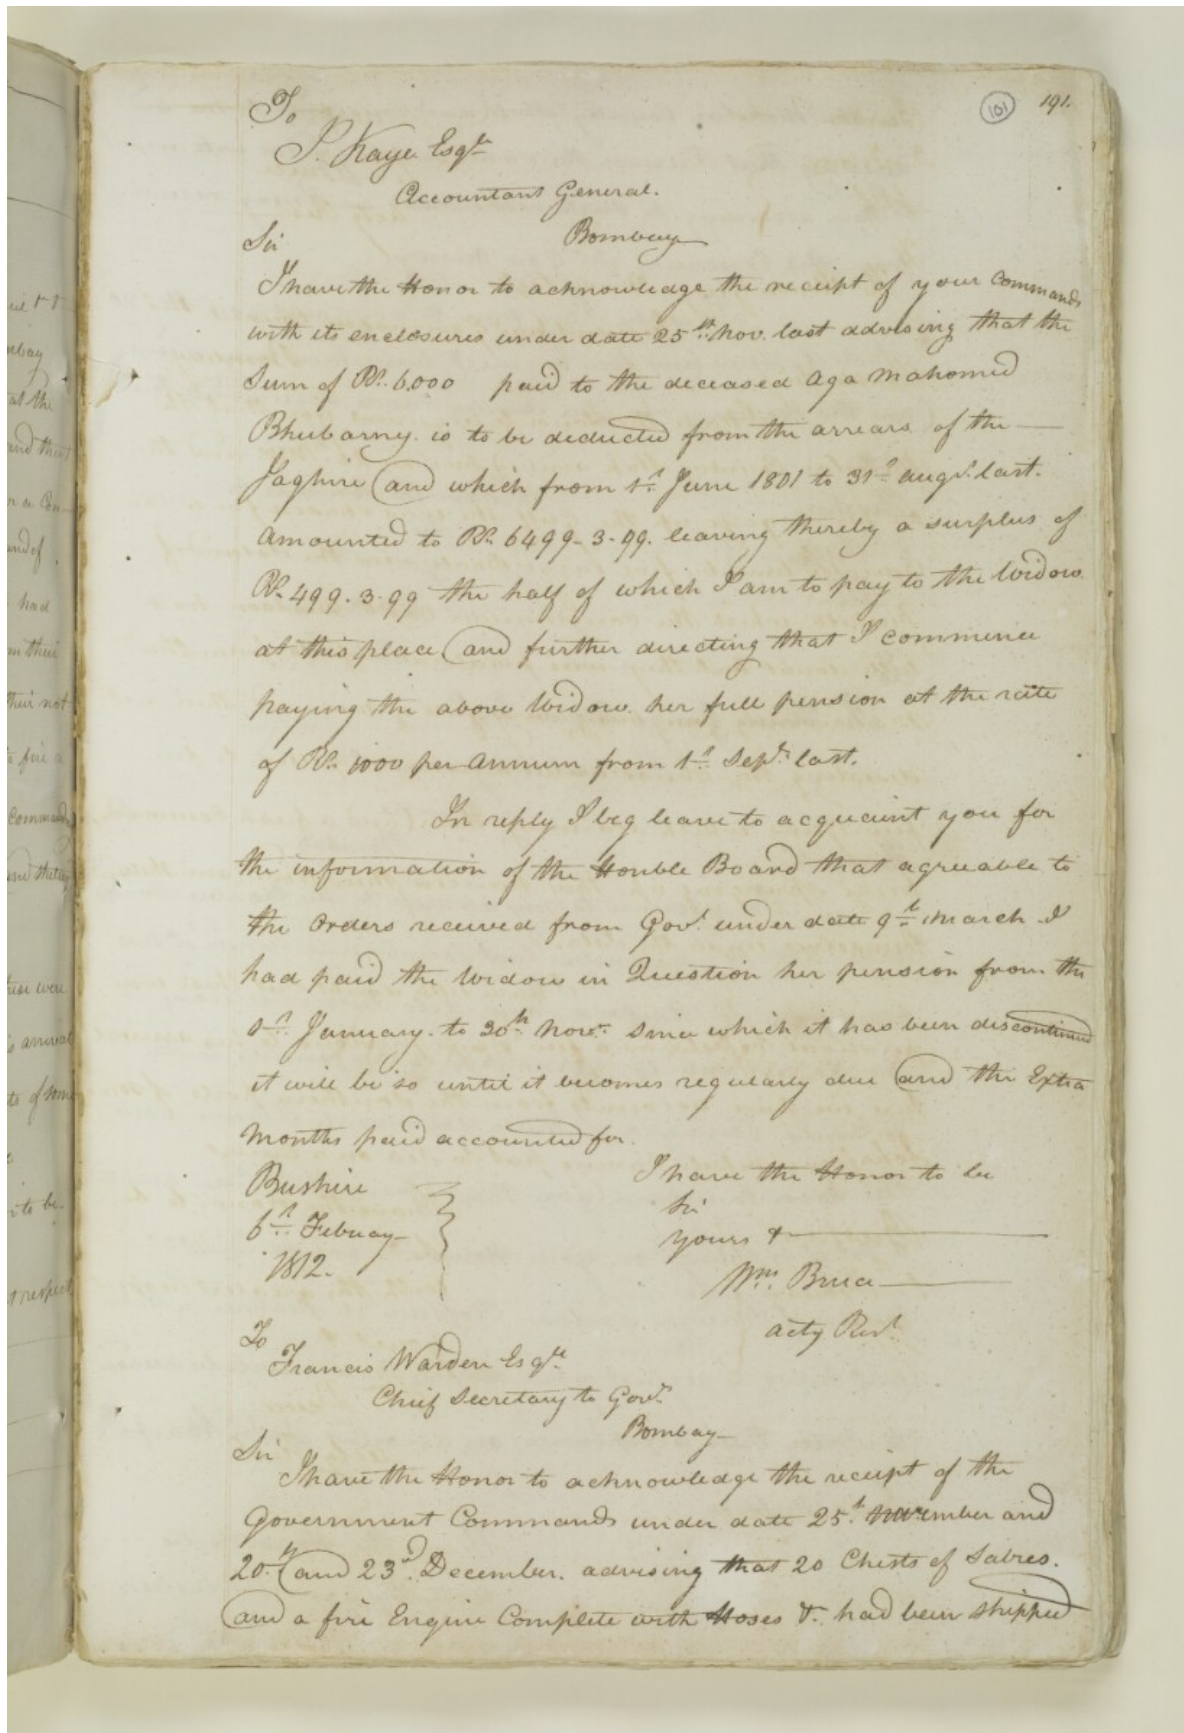 101 191.
To
J. Kaye Esqre
Accountant General.
Bombay
Sir
I have the Honor to acknowledge the receipt of your Commands
with its enclosures under date 25th Nov. last advising that the
Sum of Rs. 6,000 paid to the deceased Aga Mahomed
Bhubarny. is to be deducted from the arrears of the
Jaghire and which from 1st June 1801 to 31st augt. last.
amounted to Rs. 6499-3-99. leaving thereby a surplus of
Rs. 499.3.99 the half of which I am to pay to the Widow
at this place and further directing that I commence
paying the above Widow her full pension at the rate
of Rs. 1000 per annum from 1st Septr. last.
In reply I beg leave to acquaint you for
the information of the Honble Board that agreeable to
the Orders received from Govt. under date 9th March I
had paid the Widow in Question her pension from the
1st January to 30th Novr. since which it has been discontinued
it will be so until it becomes regularly due and the Extra
Months paid accounted for.
I have the Honor to be
Sir
yours &
Wm. Bruce
actg Rest.
Bushire
6th Febuay
1812.
To
Francis Warden Esqre.
Chief Secretary to Govt.
Bombay
Sir
I have the Honor to acknowledge the receipt of the
Government Commands under date 25th November and
20th and 23d. December. advising that 20 Chests of Sabres.
and a fire Engine Complete with Hoses &. had been shipped